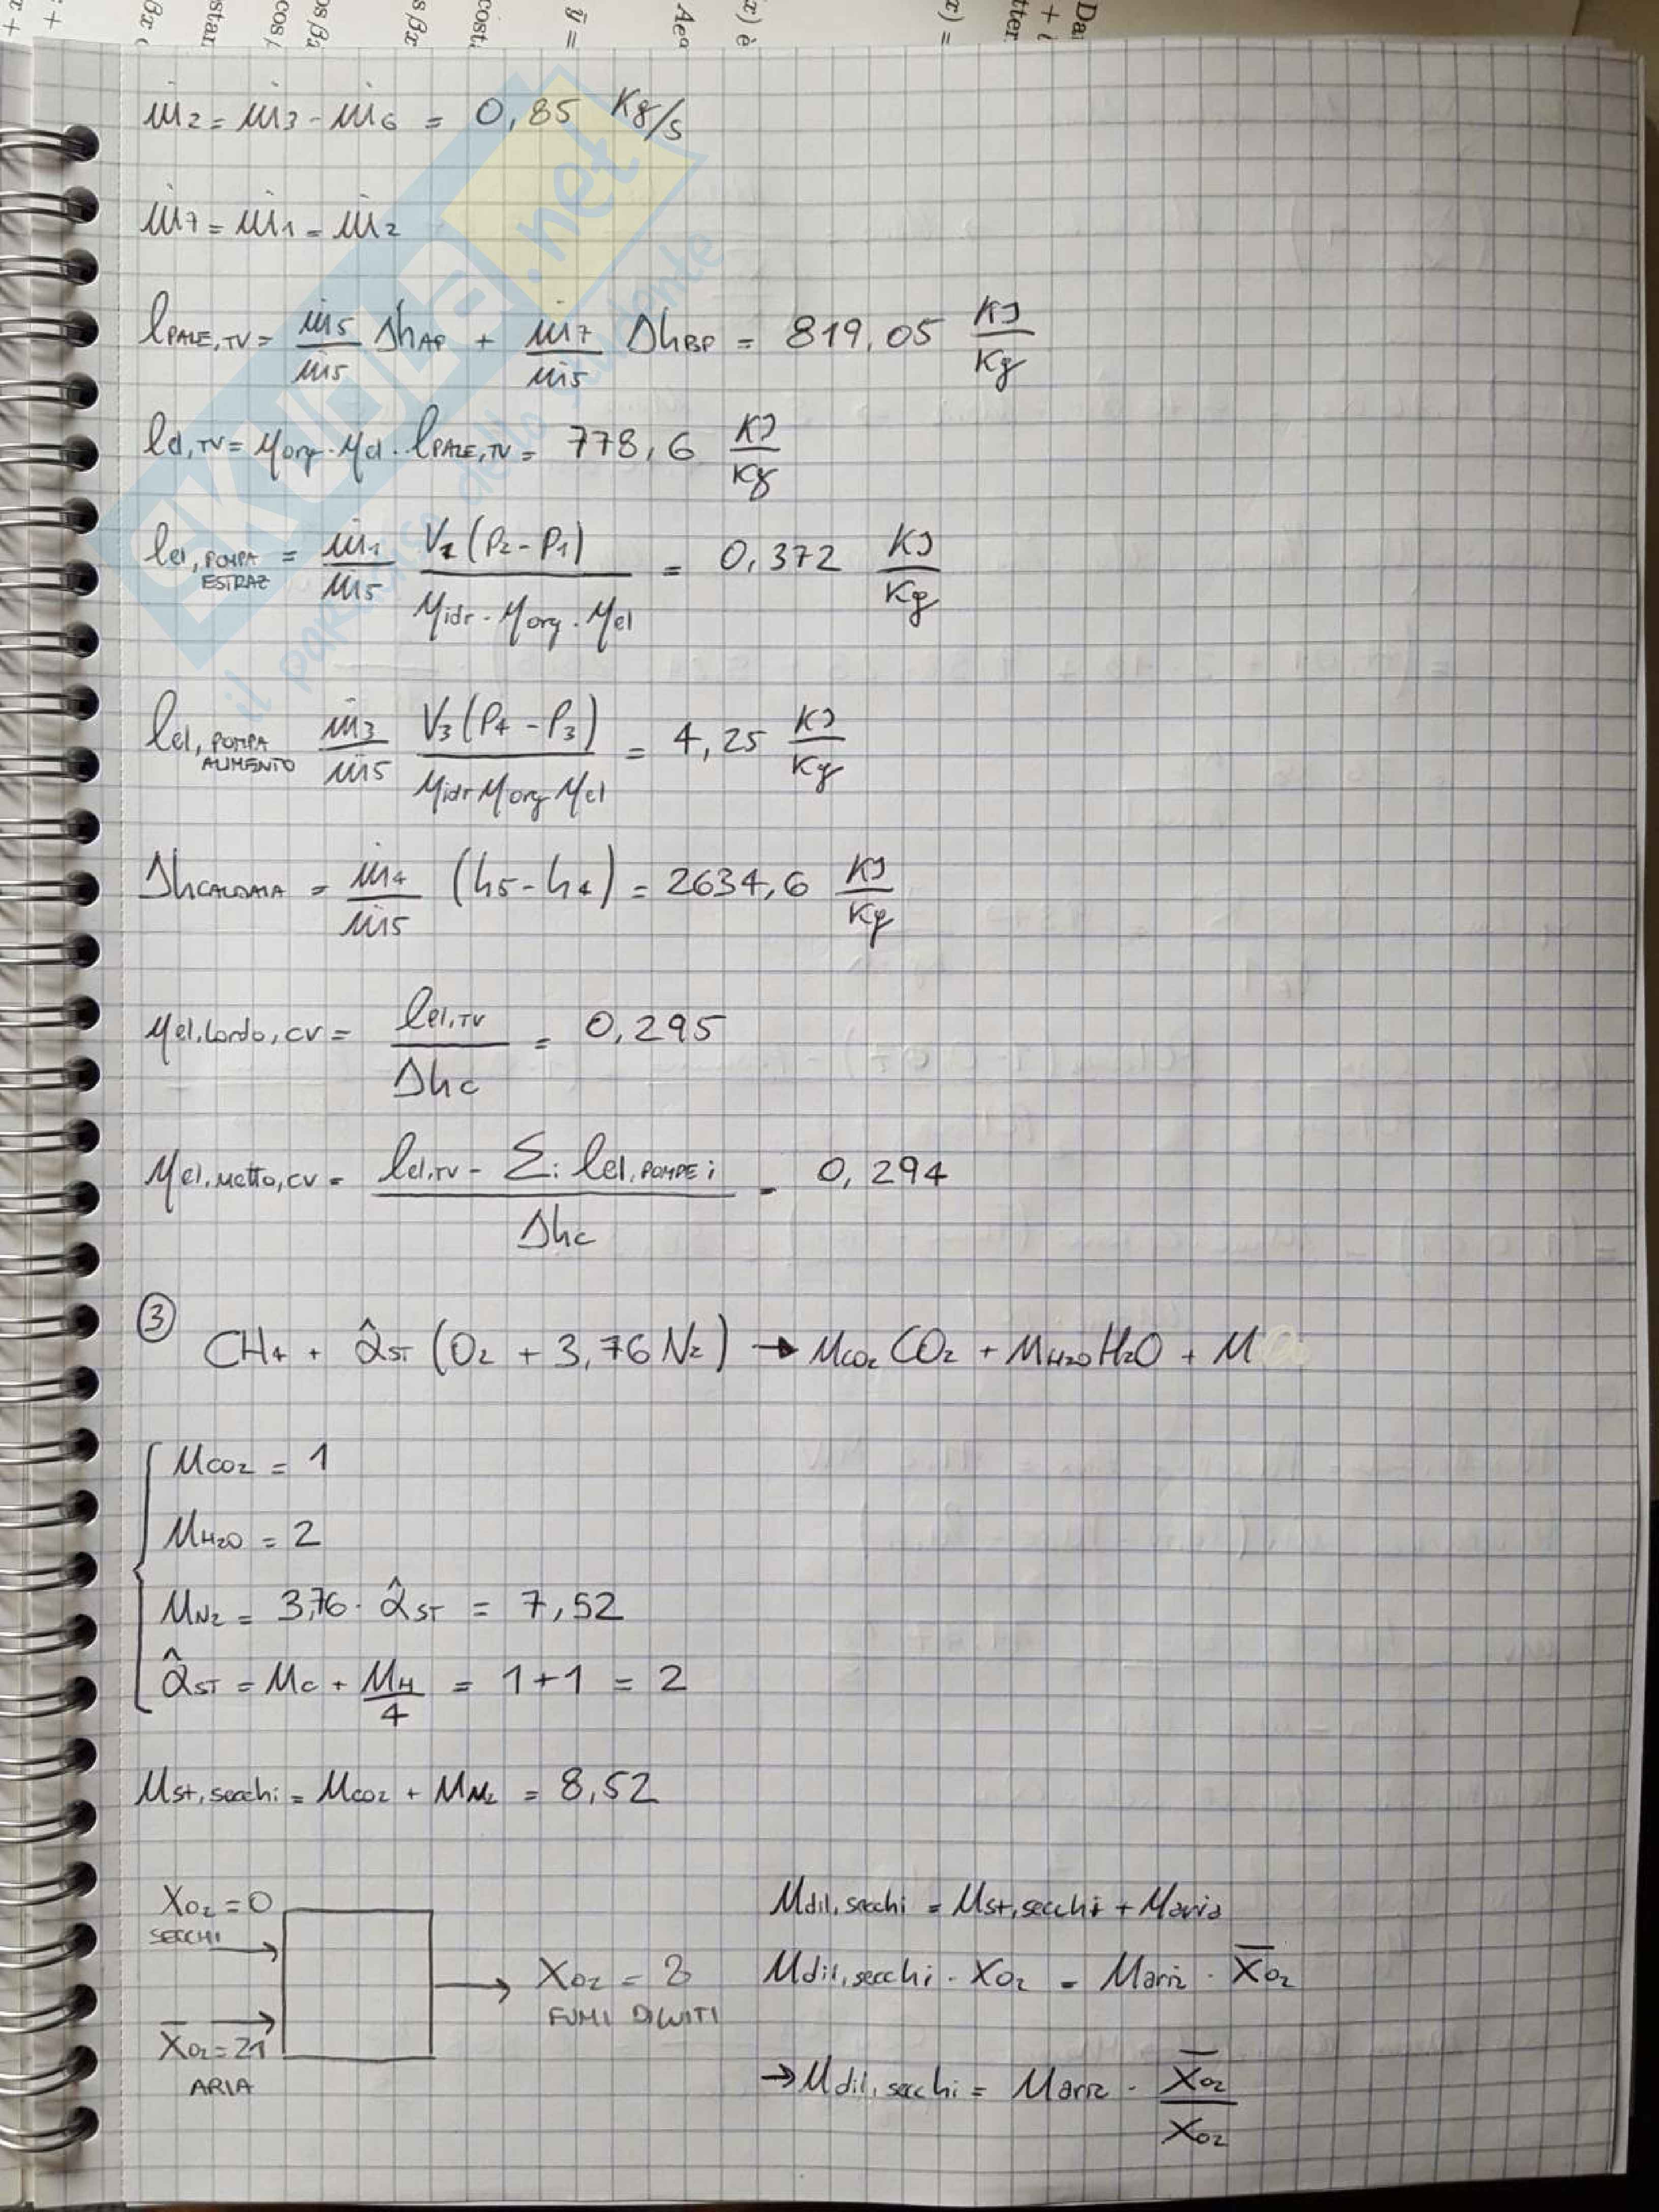 ṁ2 = ṁ3 - ṁ6 = 0,85 Kg/s
ṁ7 = ṁ1 = ṁ2
lPALE,TV = ṁ5/ṁ5 ΔhAP + ṁ7/ṁ5 ΔhBP = 819,05 KJ/Kg
lel,TV = ηorg · ηel · lPALE,TV = 778,6 KJ/Kg
lel,POMPA ESTRAZ = ṁ1/ṁ5 V1(P2-P1)/(ηidr · ηorg · ηel) = 0,372 KJ/Kg
lel,POMPA ALIMENTO ṁ3/ṁ5 V3(P4-P3)/(ηidr ηorg ηel) = 4,25 KJ/Kg
ΔhCALDAIA = ṁ4/ṁ5 (h5-h4) = 2634,6 KJ/Kg
ηel,lordo,CV = lel,TV/Δhc = 0,295
ηel,netto,CV = (lel,TV - Σi lel,POMPE i)/Δhc = 0,294
③ CH4 + α̂ST (O2 + 3,76 N2) → nCO2 CO2 + nH2O H2O + n
nCO2 = 1
nH2O = 2
nN2 = 3,76 · α̂ST = 7,52
α̂ST = nC + nH/4 = 1+1 = 2
nst,secchi = nCO2 + nN2 = 8,52
XO2 = 0
SECCHI
X̄O2 = 21
ARIA
XO2 = 3
FUMI DILUITI
ndil,secchi = nst,secchi + naria
ndil,secchi · XO2 = naria · X̄O2
→ ndil,secchi = naria · X̄O2/XO2
SKUOLA.net
il paradiso dello studente